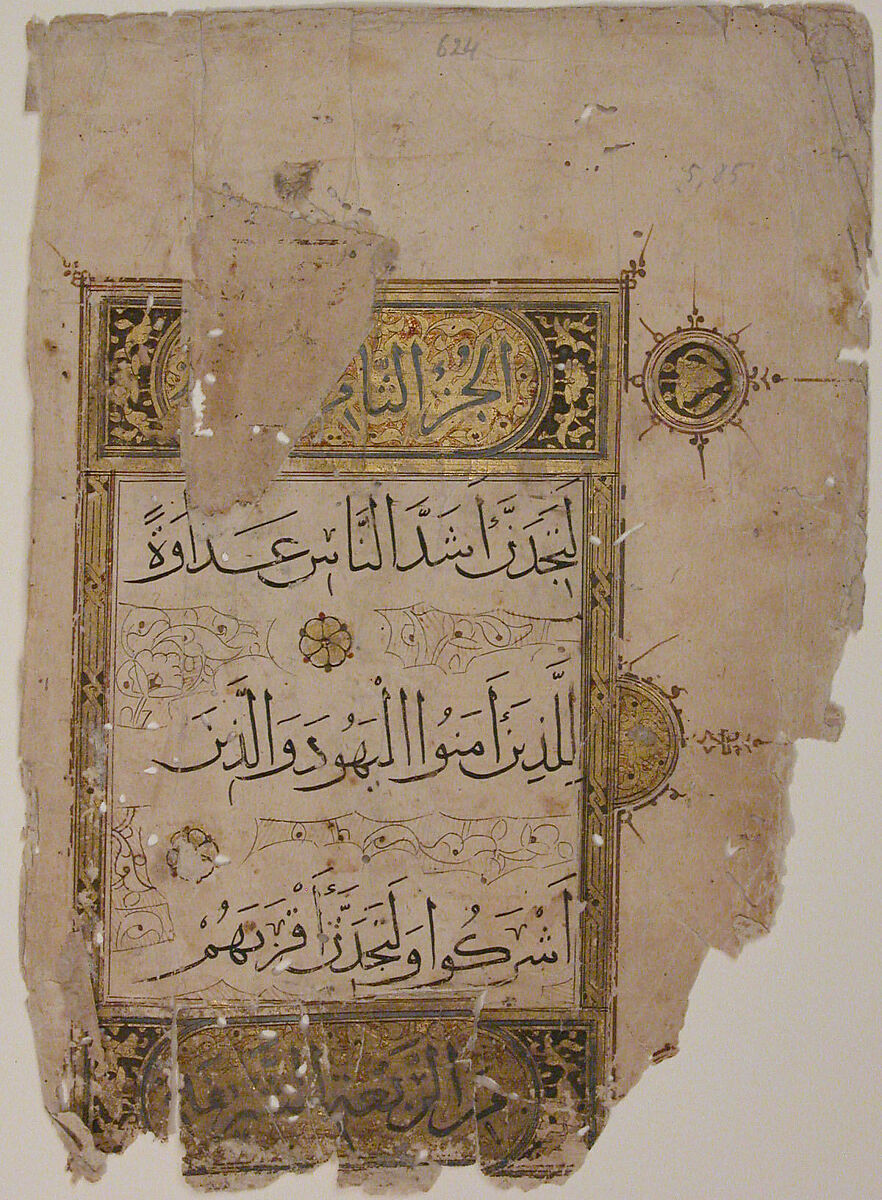 624
5,85
الجزء الثامن
لَتَجِدَنَّ أَشَدَّ النَّاسِ عَدَاوَةً
لِلَّذِينَ أَمَنُوا الْيَهُودَ وَالَّذِينَ
أَشْرَكُوا وَلَتَجِدَنَّ أَقْرَبَهُمْ
من الربعة الشريفة